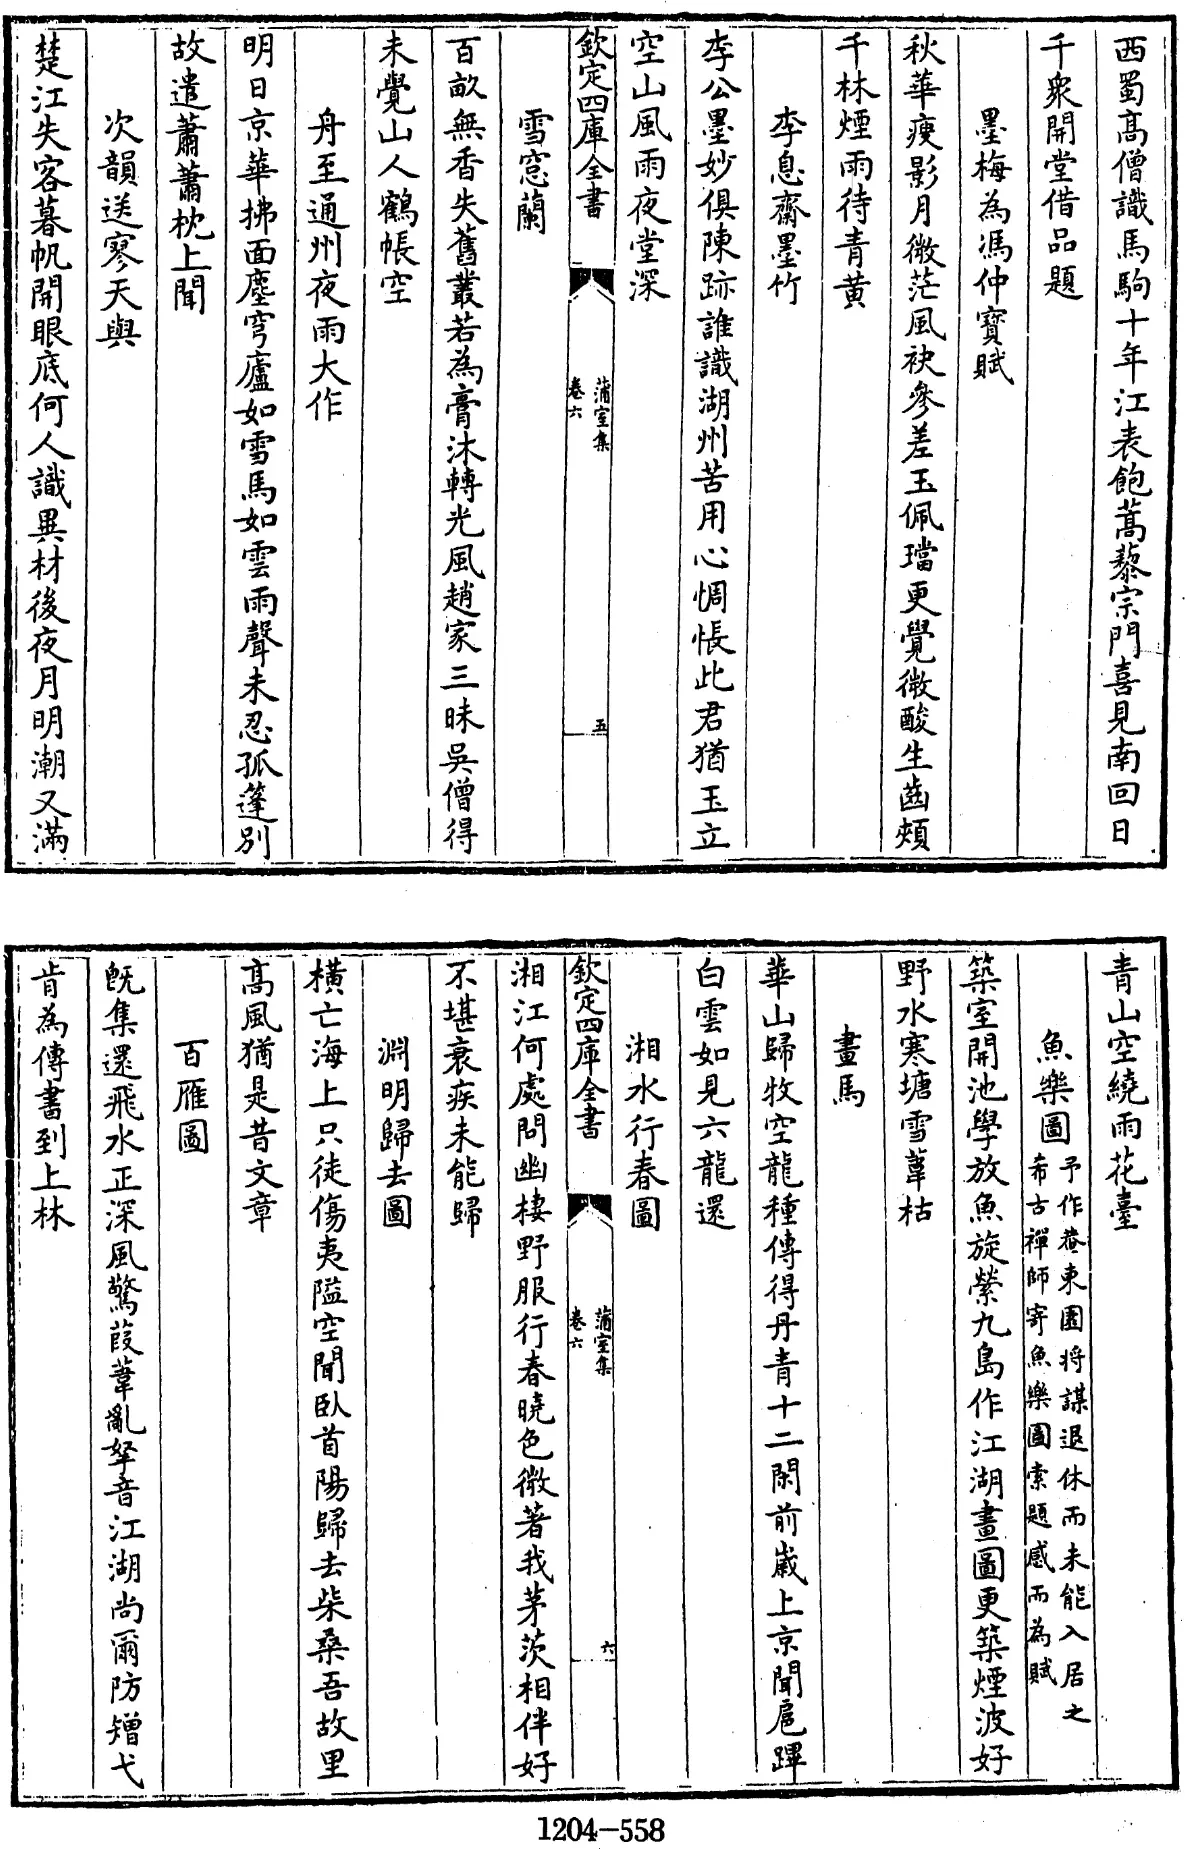 西蜀髙僧識馬駒十年江表飽蒿藜宗門喜見南回日
千衆開堂借品題
墨梅為馮仲寳賦
秋華瘦影月微茫風袂參差玉佩璫更覺微酸生齒頰
千林煙雨待青黄
李息齋墨竹
李公墨妙俱陳跡誰識湖州苦用心惆悵此君猶玉立
空山風雨夜堂深
欽定四庫全書
蒲室集
卷六
五
雪窓蘭
百畝無香失舊叢若為膏沐轉光風趙家三昧吳僧得
未覺山人鶴帳空
舟至通州夜雨大作
明日京華拂面塵穹廬如雪馬如雲雨聲未忍孤篷別
故遣蕭蕭枕上聞
次韻送寥天與
楚江失客暮帆開眼底何人識異材後夜月明潮又滿
青山空繞雨花臺
魚樂圖
予作菴東園将謀退休而未能入居之
希古禪師寄魚樂圖索題感而為賦
築室開池學放魚旋縈九島作江湖畫圖更築煙波好
野水寒塘雪葦枯
畫馬
華山歸牧空龍種傳得丹青十二閑前嵗上京聞扈蹕
白雲如見六龍還
湘水行春圖
欽定四庫全書
蒲室集
卷六
六
湘江何處問幽棲野服行春曉色微著我茅茨相伴好
不堪衰疾未能歸
淵明歸去圖
橫亡海上只徒傷夷隘空聞卧首陽歸去柴桑吾故里
髙風猶是昔文章
百雁圖
旣集還飛水正深風驚葭葦亂拏音江湖尚爾防矰弋
肯為傳書到上林
1204-558